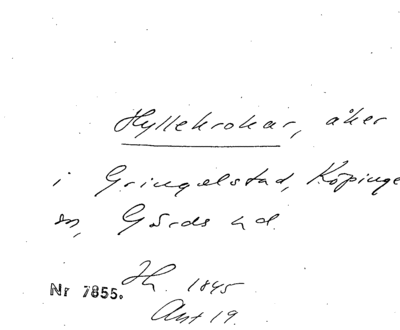 Hyllekrokar, åker
i Gringelstad, Köpinge
sn, Gärds hd.
Nr 7855.
Ant 19.